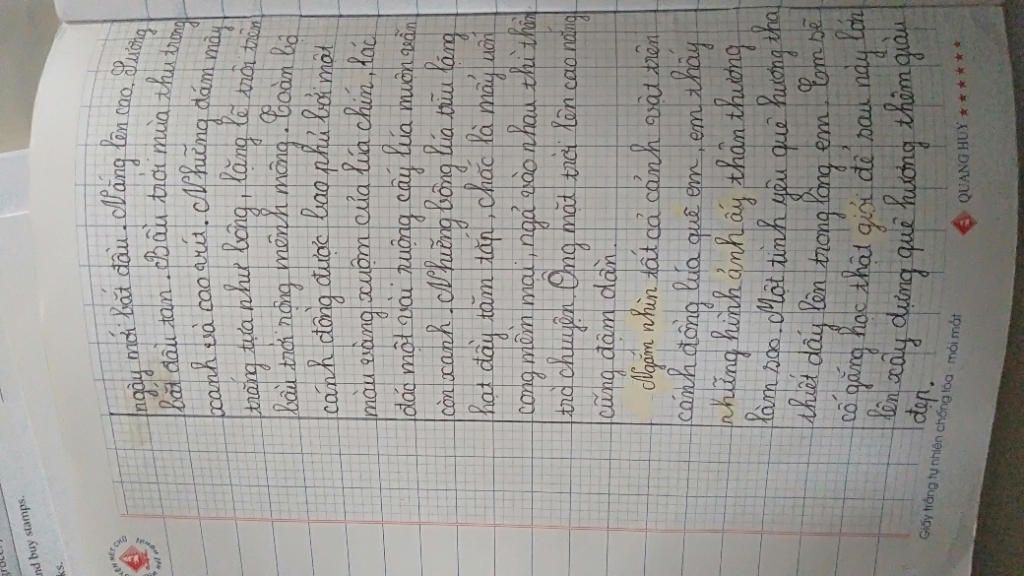 ngày mới bắt đầu. Nắng lên cao. Sương
bắt đầu tan. Bầu trời mùa thu trong
xanh và cao vút. Những đám mây
trắng tựa như bông, lặng lẽ trôi trên
bầu trời rộng mênh mông. Toàn bộ
cánh đồng được bao phủ bởi một
màu vàng xuộm của lúa chín, lác
đác một vài ruộng cấy lúa muộn vẫn
còn xanh. Những bông lúa trĩu lặng
hạt đầy tăm tắp, chốc là mấy uốn
cong mềm mại, ngả vào nhau thì thầm
trò chuyện. Ông mặt trời lên cao nắng
cũng đậm dần.
Ngắm nhìn tất cả cảnh vật trên
cánh đồng lúa quê em, em thấy
những hình ảnh ấy thân thương
làm sao. Một tình yêu quê hương tha
thiết dấy lên trong lòng em. Em sẽ
cố gắng học thật giỏi để sau này lớn
lên xây dựng quê hương thêm giàu
đẹp.
Giấy trắng tự nhiên chống lóa - mỏi mắt
QUANG HUY
nd buy stamps.
ks.